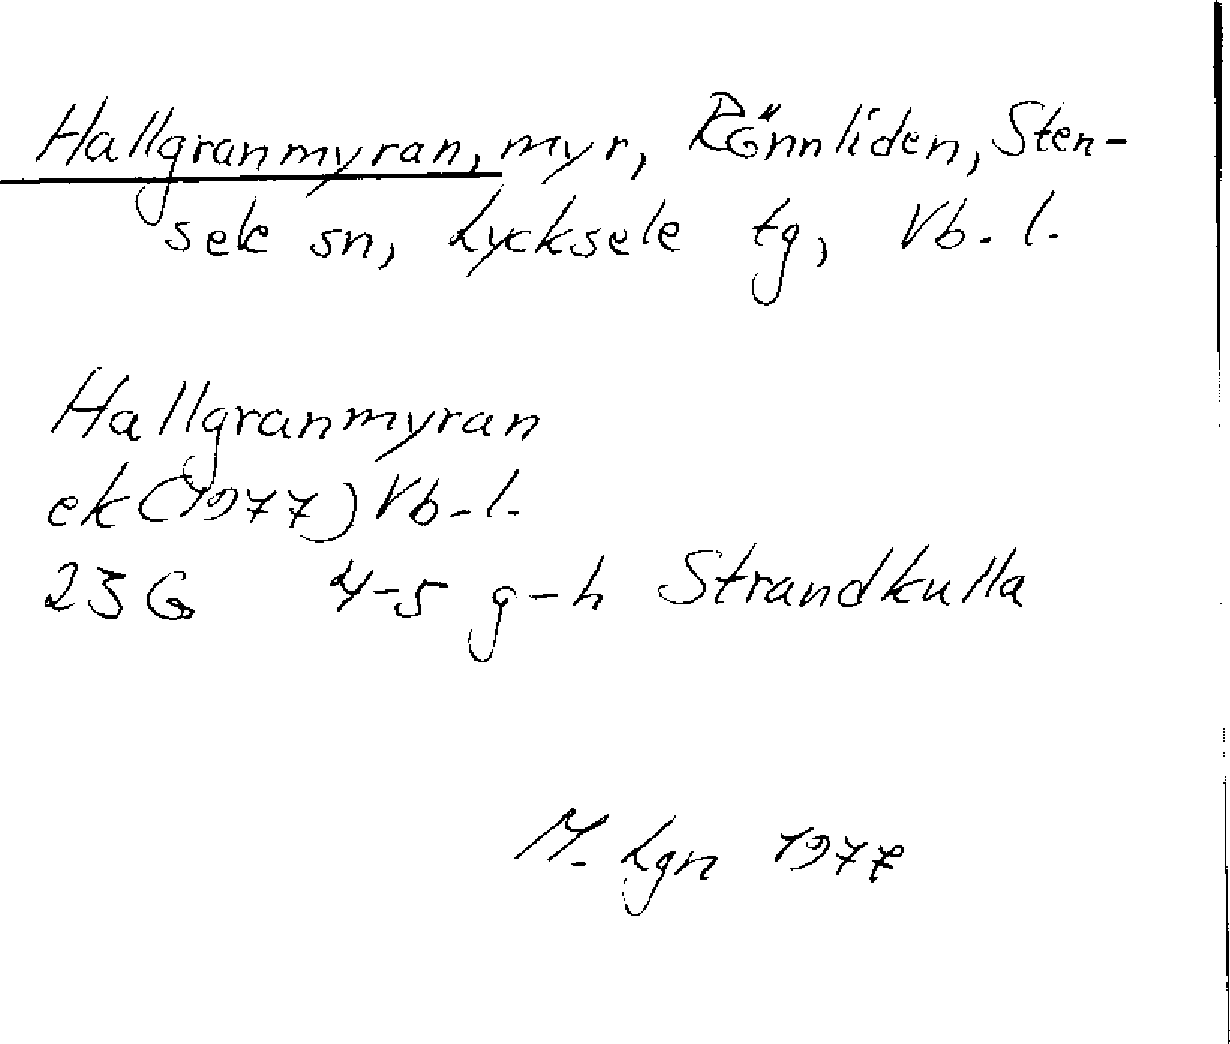 Hallgranmyran, myr, Rönnliden, Sten-
sele sn, Lycksele tg, Vb. l.
Hallgranmyran
ek (1977) Vb. l.
23 G 4-5 g-h Strandkulla
M. Lgn 1977